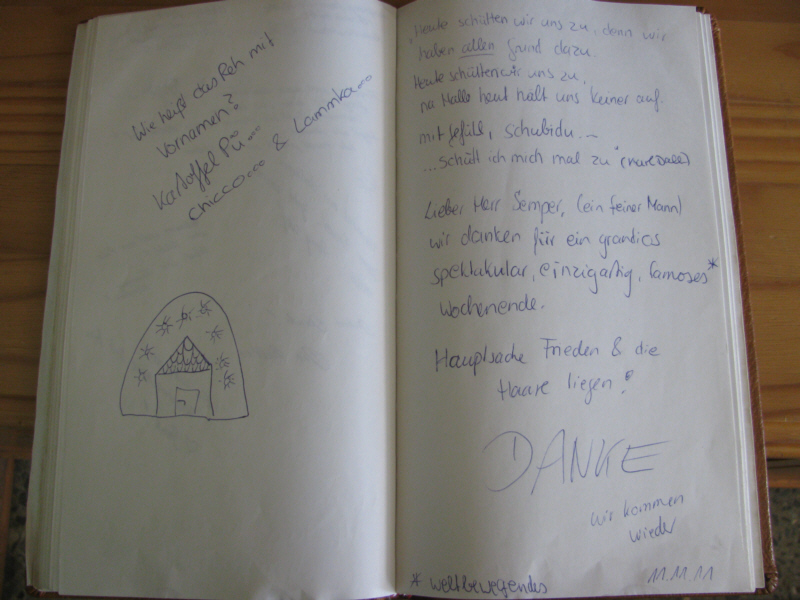 Wie heißt das Reh mit
Vornamen?
Kartoffel Pü...
Chicco... & Lammka...
"Heute schütten wir uns zu, denn wir
haben allen Grund dazu.
Heute schütten wir uns zu,
na Halle heut hält uns keiner auf.
mit Gefühl, schubidu...
...schütt ich mich mal zu"
Lieber Herr Semper, (ein feiner Mann)
wir danken für ein grandios
spektakulär, einzigartig, famoses*
Wochenende.
Hauptsache Frieden & die
Haare liegen!
DANKE
wir kommen
wieder
* weltbewegendes
11.11.11